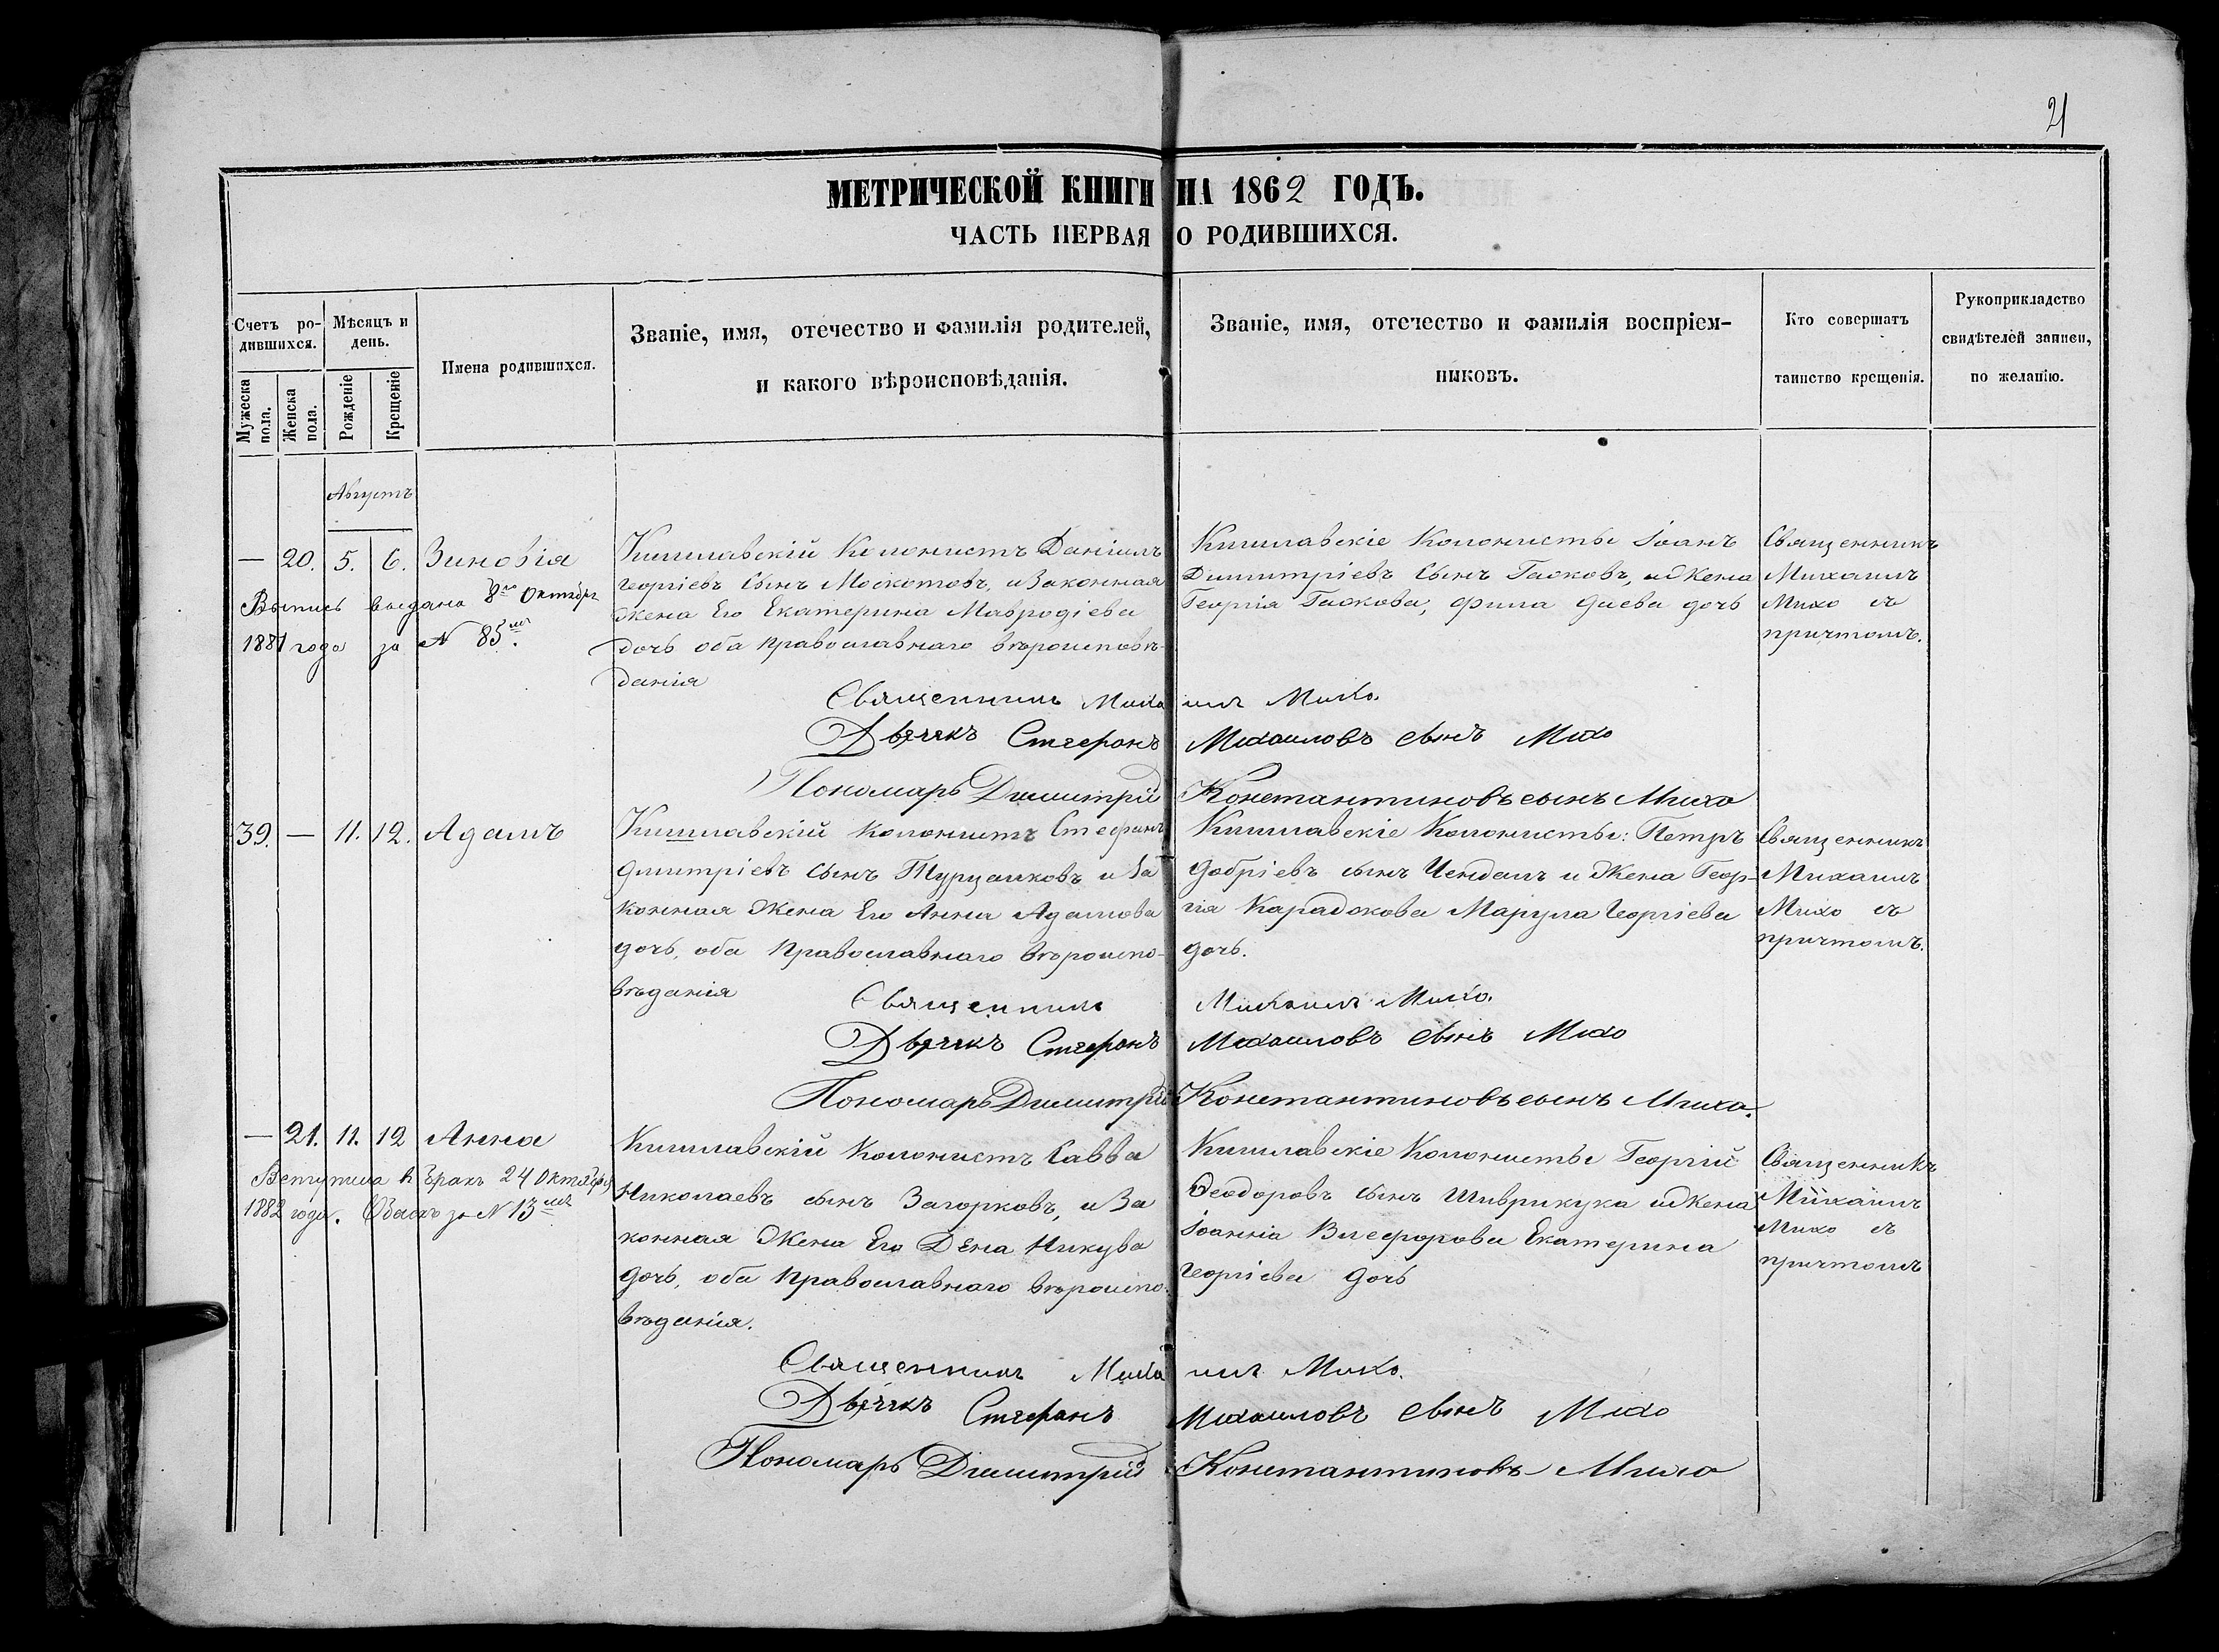 21
МЕТРИЧЕСКОЙ КНИГИ НА 1862 ГОДЪ.
ЧАСТЬ ПЕРВАЯ О РОДИВШИХСЯ.
Счетъ ро-
дившихся.
Мужеска пола.
Женска пола.
Мѣсяцъ и
день.
Рожденіе
Крещеніе
Имена родившихся.
Званіе, имя, отечество и фамилія родителей,
и какого вѣроисповѣданія.
Званіе, имя, отечество и фамилія воспріем-
никовъ.
Кто совершатъ
таинство крещенія.
Рукоприкладство
свидѣтелей записи,
по желанію.
Августъ
— 20. 5. 6. Зиновія
Выпись выдана 8го Октября
1881 года за N 85мъ.
Кишлавскій Колонистъ Даніилъ
Георгіевъ Сынъ Москотовъ, и Законная
Жена Его Екатерина Мавродіева
дочь оба православнаго вѣроисповѣ-
данія
Кишлавскіе Колонисты Іоанъ
Димитріевъ Сынъ Гасковъ, и Жена
Георгія Гаскова, дочь
Священникъ
Михаилъ
Михо съ
причтомъ.
Священникъ Михаилъ Михо.
Дьячекъ Стефанъ Михаиловъ сынъ Михо
Пономарь Димитрій Константиновъ сынъ Михо
39. — 11. 12. Адамъ
Кишлавскій Колонистъ Стефанъ
Димитріевъ Сынъ Турцанковъ и За
конная Жена Его Анна Адамова
дочь, оба Православнаго вѣроиспо-
вѣданія
Кишлавскіе Колонисты: Петръ
Добріевъ сынъ Чендемъ и Жена Геор-
гія Карадокова Марула Георгіева
дочь.
Священникъ
Михаилъ
Михо съ
причтомъ.
Священникъ Михаилъ Михо.
Дьячекъ Стефанъ Михаиловъ сынъ Михо
Пономарь Димитрій Константиновъ сынъ Михо.
— 21. 11. 12 Анна
Вступила въ бракъ 24 Октября
1882 года. Обыскъ за N 13мъ
Кишлавскій Колонистъ Савва
Николаевъ сынъ Загорковъ, и За
конная Жена Его Дена Никува
дочь, оба Православнаго вѣроиспо-
вѣданія.
Кишлавскіе Колонисты Георгій
Ѳеодоровъ Сынъ Шиврикука и Жена
Іоаннія Екатерина
Георгіева дочь
Священникъ
Михаилъ
Михо съ
причтомъ
Священникъ Михаилъ Михо.
Дьячекъ Стефанъ Михаиловъ сынъ Михо
Пономарь Димитрій Константиновъ Михо